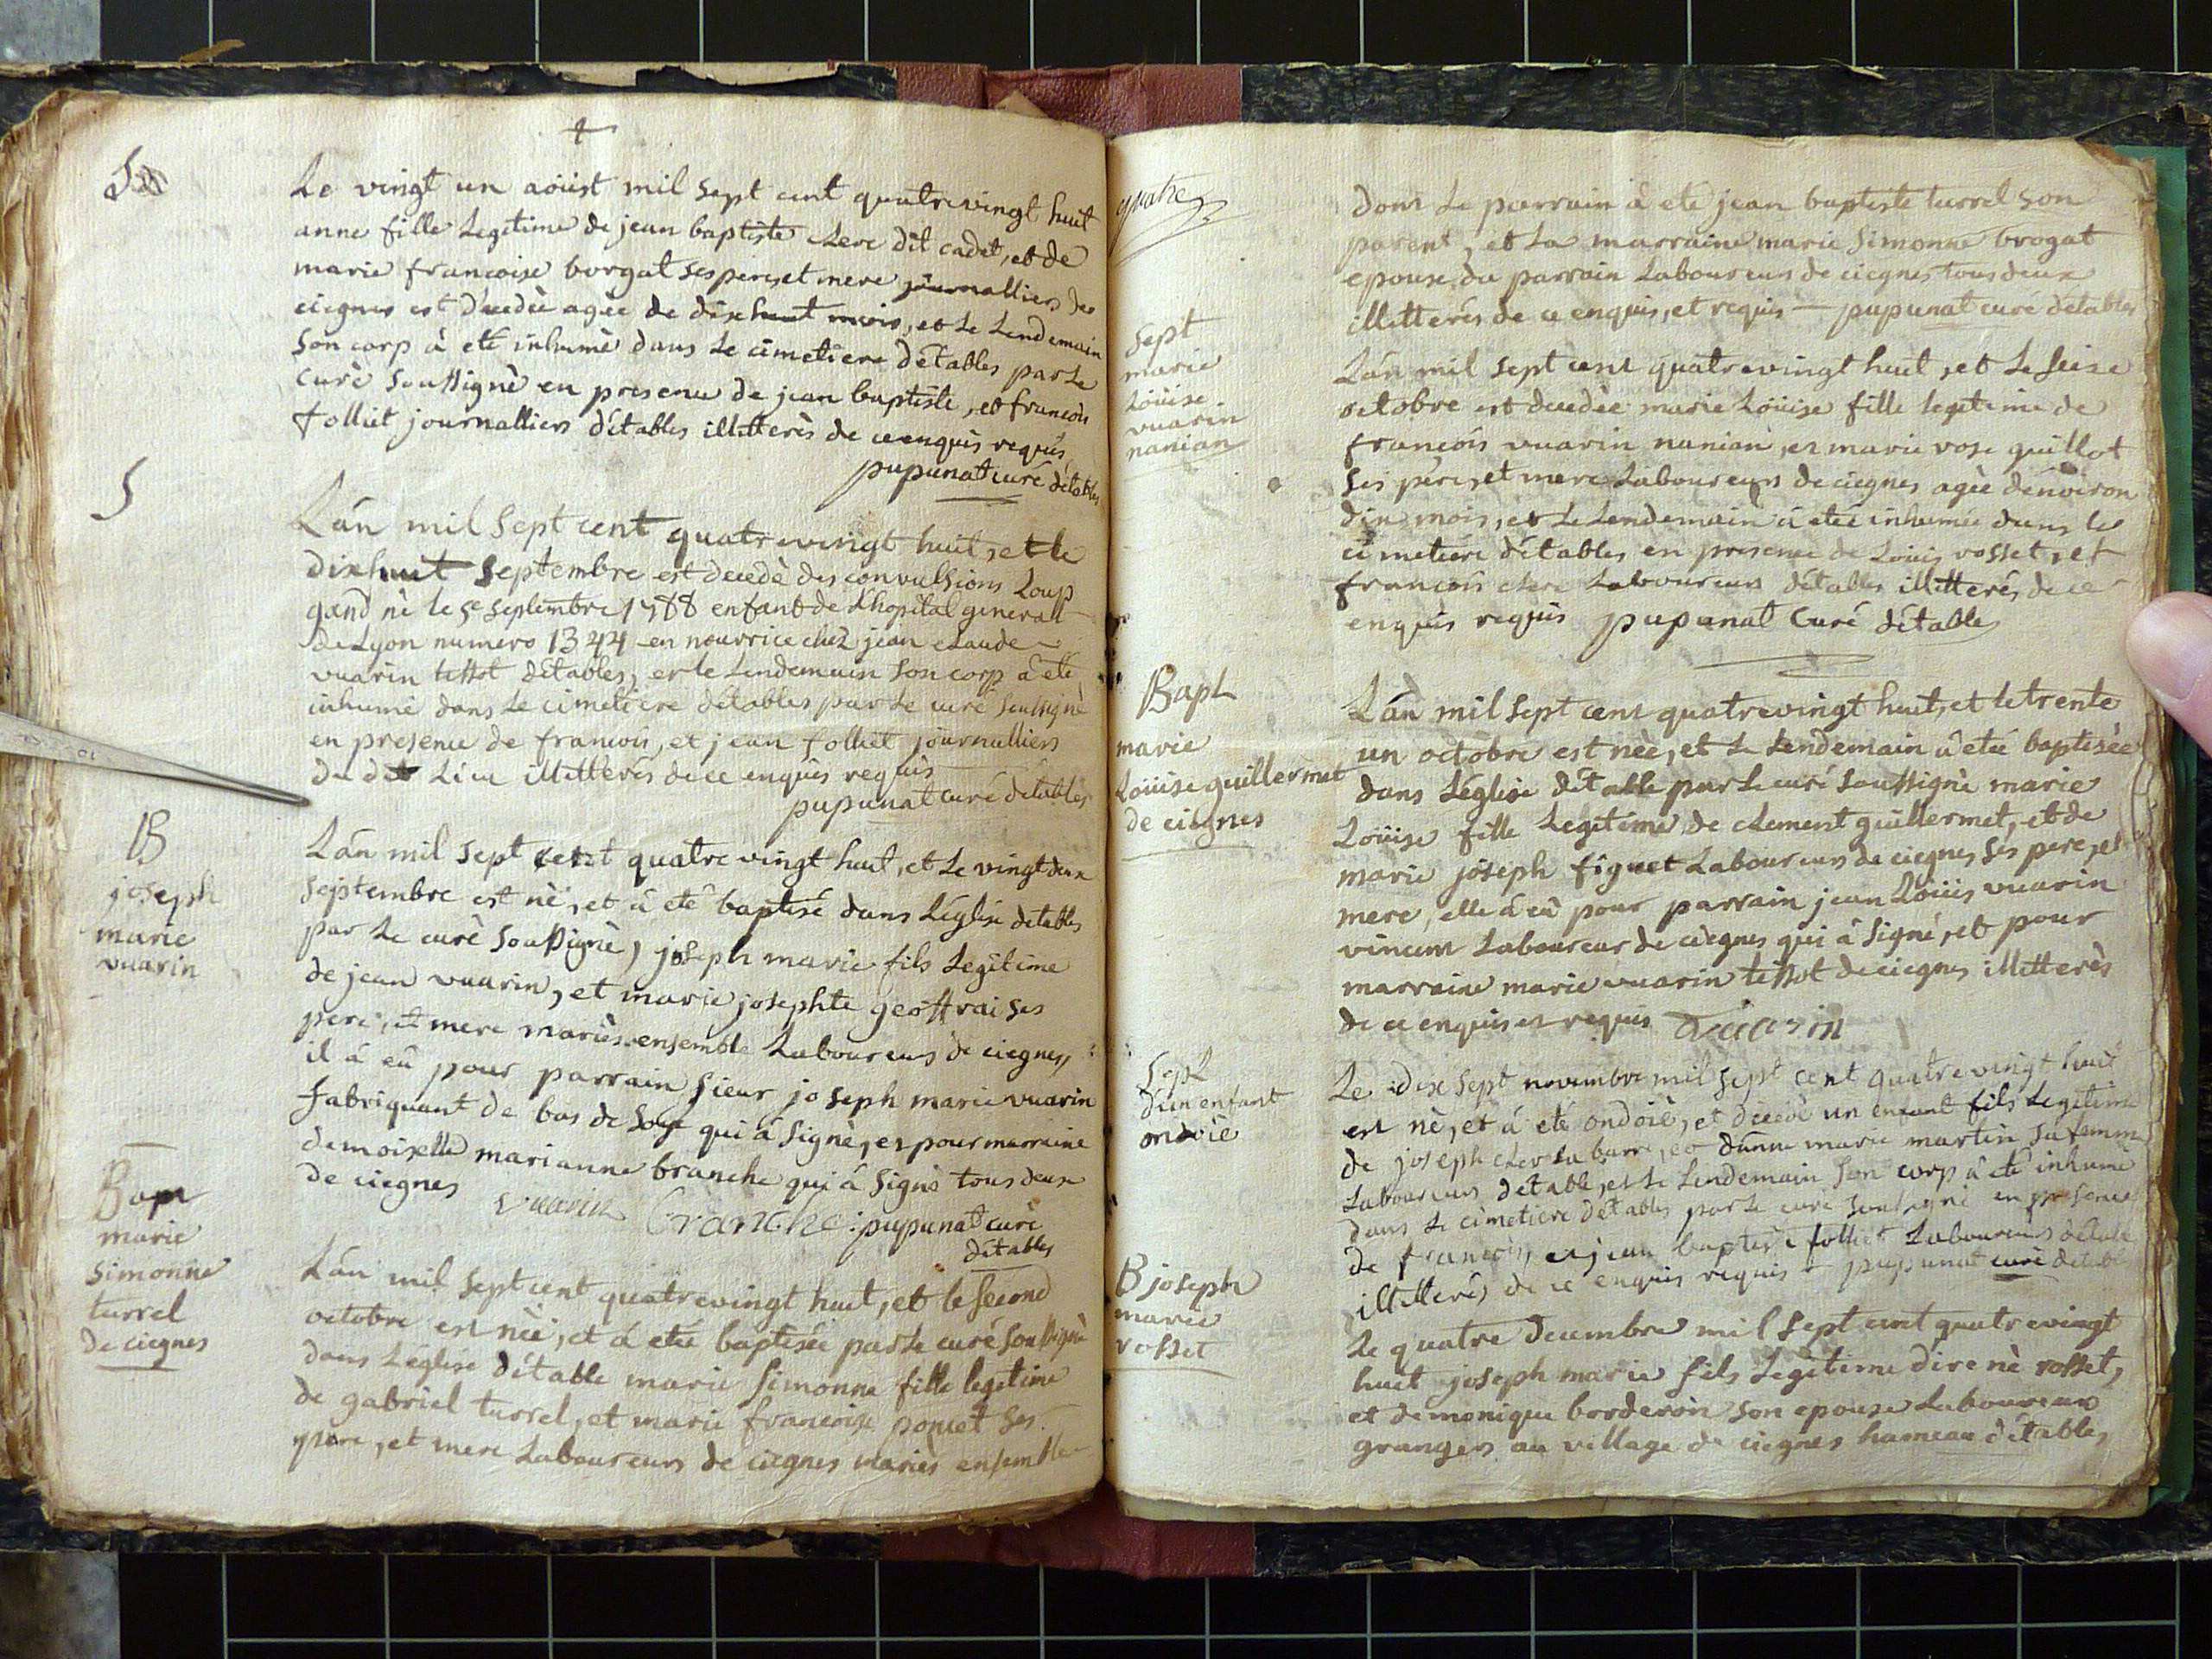 S
Le vingt un aoüst mil sept cent quatrevingt huit
anne fille Legitime de jean baptiste clerc dit cadet, et de
marie francoise borgat ses pere, et mere journalliers de
ciegnes est décedèe agèe de dixhuit mois, et le Lendemain
son corp à eté inhumè dans le cimetiere d'étables par le
curè soussignè en presence de jean baptiste, et francois
folliet journalliers d'étables illitterès de ce enquis requis
pupunat curé d'étables
S
L'án mil sept cent quatrevingt huit, et le
dixhuit septembre est decedè des convulsions Loup
gand nè le 5e septembre 1788 enfant de L'hopital generall
de Lyon numero 1344 en nourrice chez jean claude
vuarin tissot d'étables, et le Lendemain son corp à eté
inhumé dans le cimetiere d'étables par le curé soussigné
en presence de francois, et jean folliet journalliers
du dit Lieu illitterés de ce enquis requis
pupunat curé d'étables
B
joseph
marie
vuarin
L'án mil sept cent quatrevingt huit, et le vingt deux
septembre est nè, et à eté baptisé dans L'église d'etables
par le curè soussignè, joseph marie fils Legitime
de jean vuarin, et marie josephte geoffrai ses
pere, et mere mariès ensemble Laboureurs de ciegnes,
il à eû pour parrain sieur joseph marie vuarin
fabriquant de bas de soye qui à signè, et pour marraine
demoiselle marianne branche qui à signè tous deux
de ciegnes
vuarin branche : pupunat curè
d'étables
Bapt
marie
simonne
turrel
de ciegnes
L'án mil sept cent quatrevingt huit, et le second
octobre est nèè, et à etèe baptisèe par le curé soussignè
dans L'église d'étable marie simonne fille legitime
de gabriel turrel, et marie francoise poncet ses
pere, et mere Laboureurs de ciegnes mariès ensemble
quatre
dont le parrain à eté jean baptiste turrel son
parent, et la marraine marie simonne brogat
epouse du parrain Laboureurs de ciegnes tous deux
illitterés de ce enquis, et requis — pupunat curé d'étables
sept
marie
Loüise
vuarin
nanian
L'án mil sept cent quatrevingt huit, et le seize
octobre est decedèe marie Loüise fille legitime de
francois vuarin nanian, et marie rose guillot
ses pere, et mere Laboureurs de ciegnes agèe d'environ
dix mois, et le Lendemain à etèe inhumée dans le
cimetiere d'étables en presence de Louis rosset, et
francois clerc Laboureurs d'étables illitterés de ce
enquis requis pupunat Curé d'étables
Bapt
marie
Loüise guillermet
de ciegnes
L'án mil sept cent quatrevingt huit, et le trente
un octobre est nèe, et le Lendemain à etèe baptisèe
dans L'église d'étable par le curé soussignè marie
Loüise fille Legitime de clement guillermet, et de
marie joseph figuet Laboureurs de ciegnes ses pere, et
mere, elle à eû pour parrain jean Loüis vuarin
vincent Laboureur de ciegnes qui à signé, et pour
marraine marie vuarin tissot de ciegnes illitterès
de ce enquis et requis Vuarin
Sept
d'un enfant
ondoiè
Le dix sept novembre mil sept cent quatrevingt huit
est nè, et à eté ondoiè, et décedè un enfant fils Legitime
de joseph clerc la barre, et d'anne marie martin sa femme
Laboureurs d'étables, et le Lendemain son corp à eté inhumé
dans le cimetiere d'étables par le curé soussigné en presence
de francois, et jean baptiste folliet Laboureurs d'étable
illitterés de ce enquis requis — pupunat curé d'etable
B joseph
marie
rosset
Le quatre decembre mil sept cent quatrevingt
huit joseph marie fils Legitime d'irenè rosset,
et de monique borderon son epouse Laboureurs
grangers au village de ciegnes hameau d'étables,